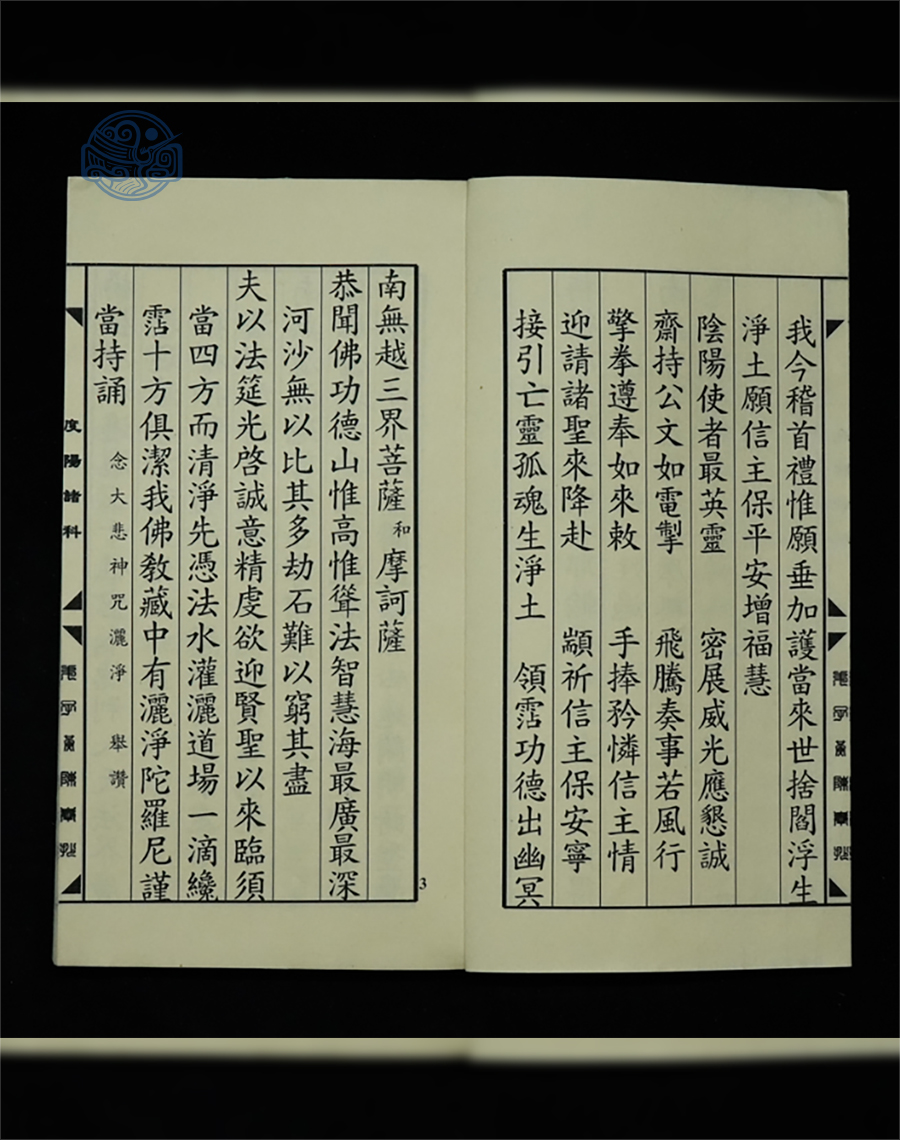 我今稽首禮惟願垂加護當來世捨閻浮生
淨土願信主保平安增福慧
陰陽使者最英靈　密展威光應懇誠
齋持公文如電掣　飛騰奏事若風行
擎拳遵奉如來敕　手捧矜憐信主情
迎請諸聖來降赴　顓祈信主保安寧
接引亡靈孤魂生淨土　領霑功德出幽冥
南無越三界菩薩 和 摩訶薩
恭聞佛功德山惟高惟聳法智慧海最廣最深
河沙無以比其多劫石難以窮其盡
夫以法筵光啓誠意精虔欲迎賢聖以來臨須
當四方而清淨先憑法水灌灑道場一滴纔
霑十方俱潔我佛教藏中有灑淨陀羅尼謹
當持誦 念大悲神咒灑淨 舉讚
度陽諸科
3